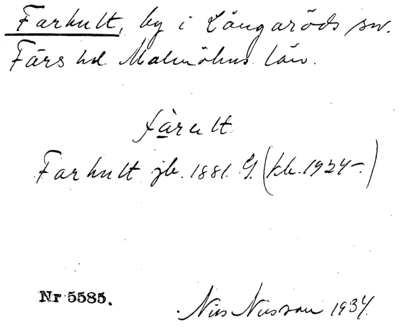 Farhult, by i Långaröds sn.
Färs hd. Malmöhus län.
fàrɷlt
Farhult jb. 1881. G. (kb. 1924-.)
Nr 5585.
Nils Nilsson 1934.